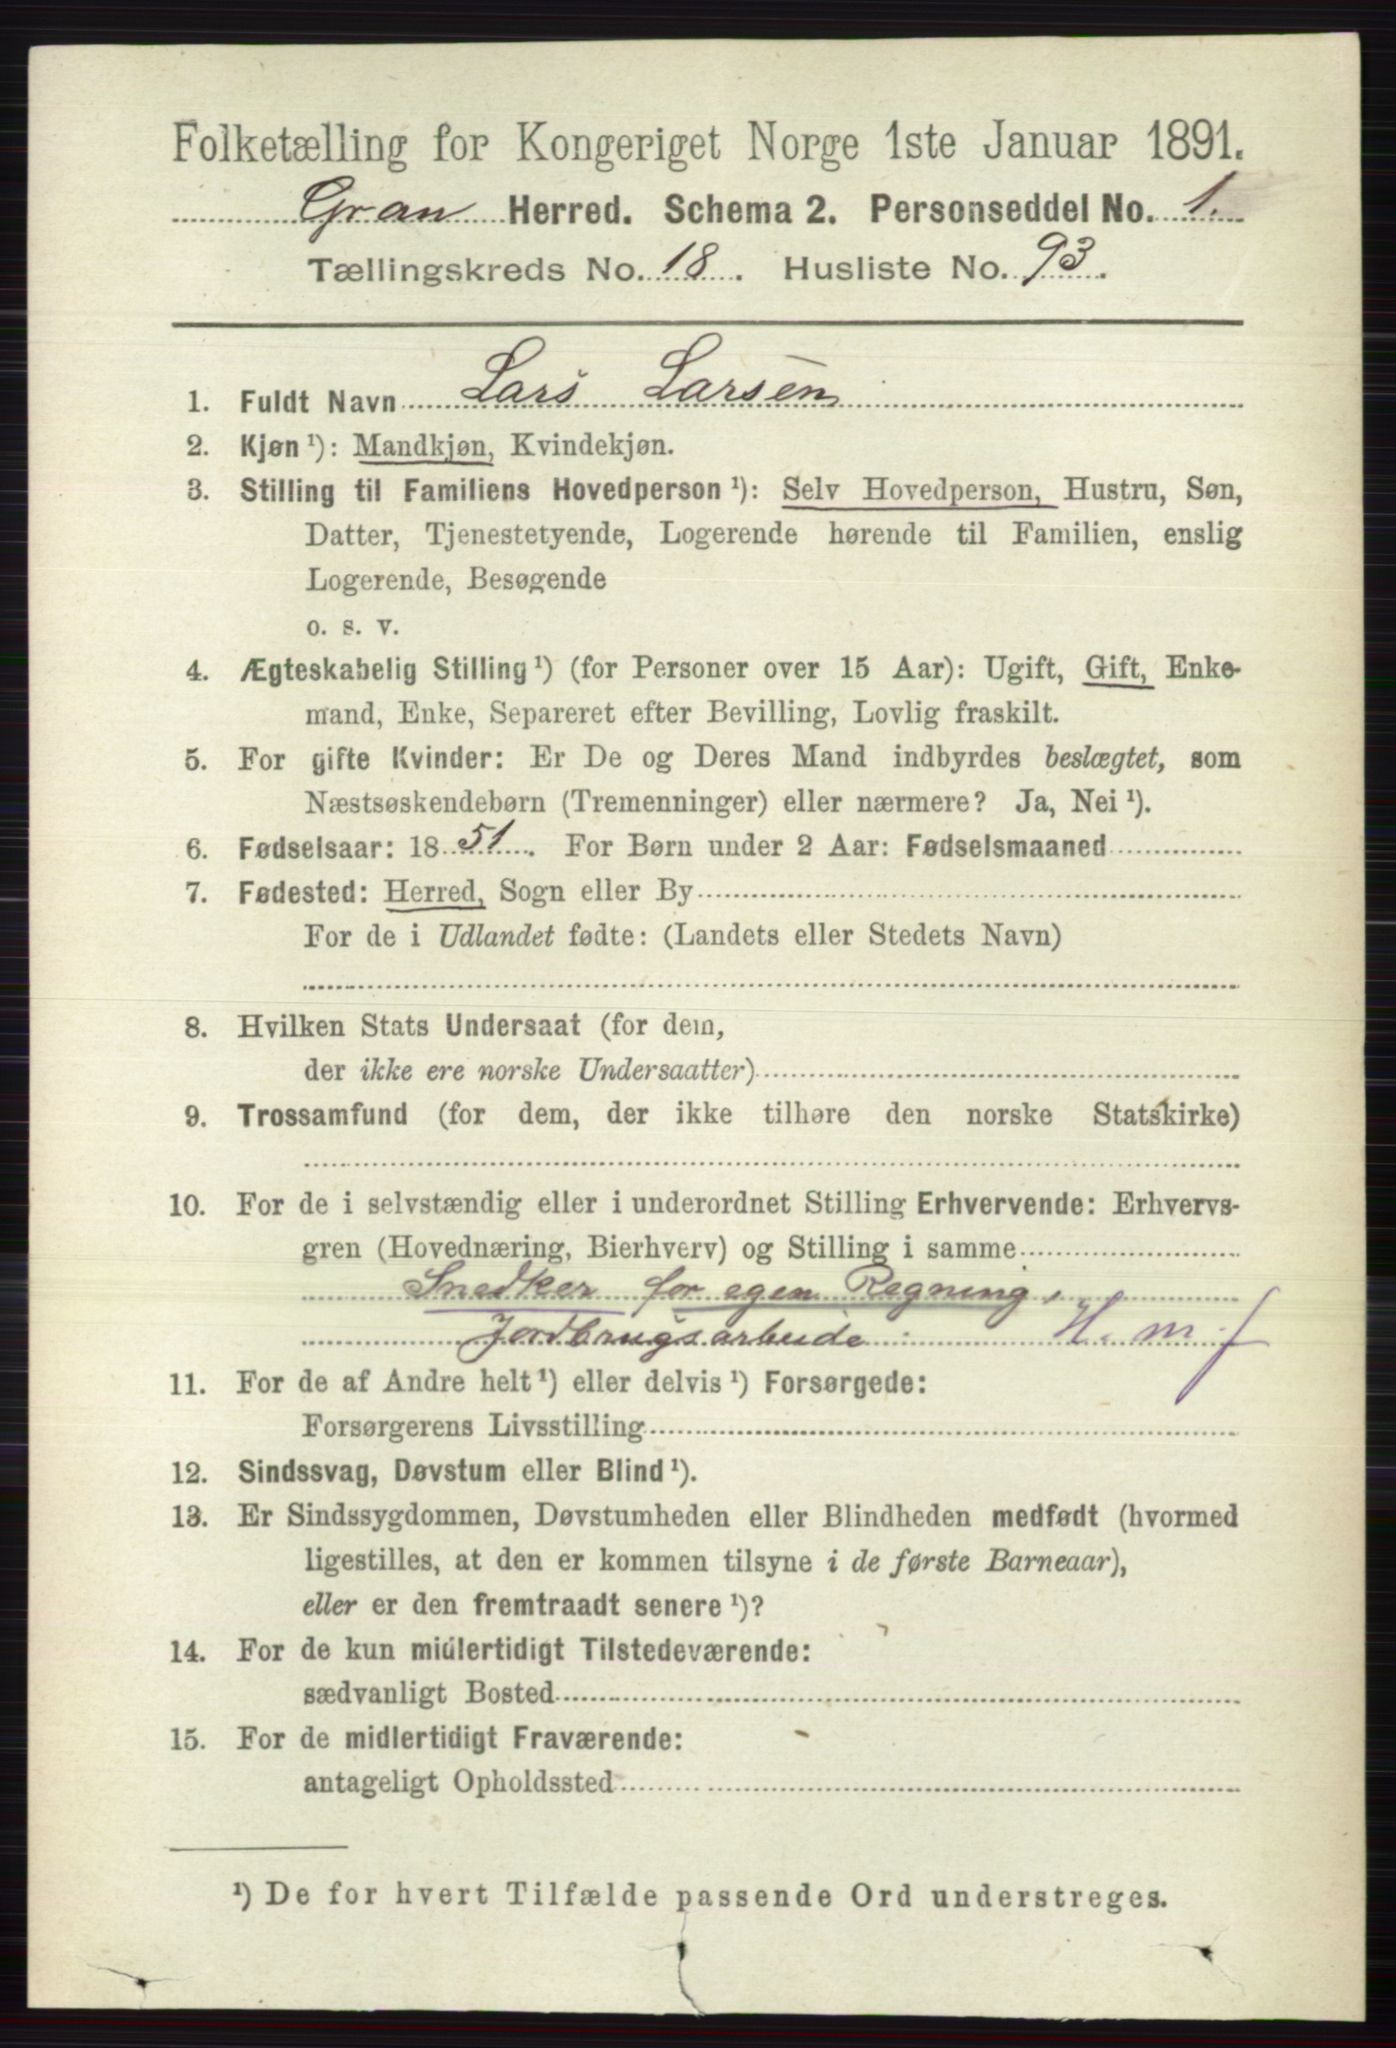 Folketælling for Kongeriget Norge 1ste Januar 1891.
Gran Herred. Schema 2. Personseddel No. 1.
Tællingskreds No. 18. Husliste No. 93.
1. Fuldt Navn Lars Larsen
2. Kjøn ¹): Mandkjøn, Kvindekjøn.
3. Stilling til Familiens Hovedperson ¹): Selv Hovedperson, Hustru, Søn,
Datter, Tjenestetyende, Logerende hørende til Familien, enslig
Logerende, Besøgende
o. s. v.
4. Ægteskabelig Stilling ¹) (for Personer over 15 Aar): Ugift, Gift, Enke-
mand, Enke, Separeret efter Bevilling, Lovlig fraskilt.
5. For gifte Kvinder: Er De og Deres Mand indbyrdes beslægtet, som
Næstsøskendebørn (Tremenninger) eller nærmere? Ja, Nei ¹).
6. Fødselsaar: 1851. For Børn under 2 Aar: Fødselsmaaned
7. Fødested: Herred, Sogn eller By
For de i Udlandet fødte: (Landets eller Stedets Navn)
8. Hvilken Stats Undersaat (for dem,
der ikke ere norske Undersaatter)
9. Trossamfund (for dem, der ikke tilhøre den norske Statskirke)
10. For de i selvstændig eller i underordnet Stilling Erhvervende: Erhvervs-
gren (Hovednæring, Bierhverv) og Stilling i samme
Snedker for egen Regning,
Jordbrugsarbeide H. m. f
11. For de af Andre helt ¹) eller delvis ¹) Forsørgede:
Forsørgerens Livsstilling
12. Sindssvag, Døvstum eller Blind ¹).
13. Er Sindssygdommen, Døvstumheden eller Blindheden medfødt (hvormed
ligestilles, at den er kommen tilsyne i de første Barneaar),
eller er den fremtraadt senere ¹)?
14. For de kun midlertidigt Tilstedeværende:
sædvanligt Bosted
15. For de midlertidigt Fraværende:
antageligt Opholdssted
¹) De for hvert Tilfælde passende Ord understreges.